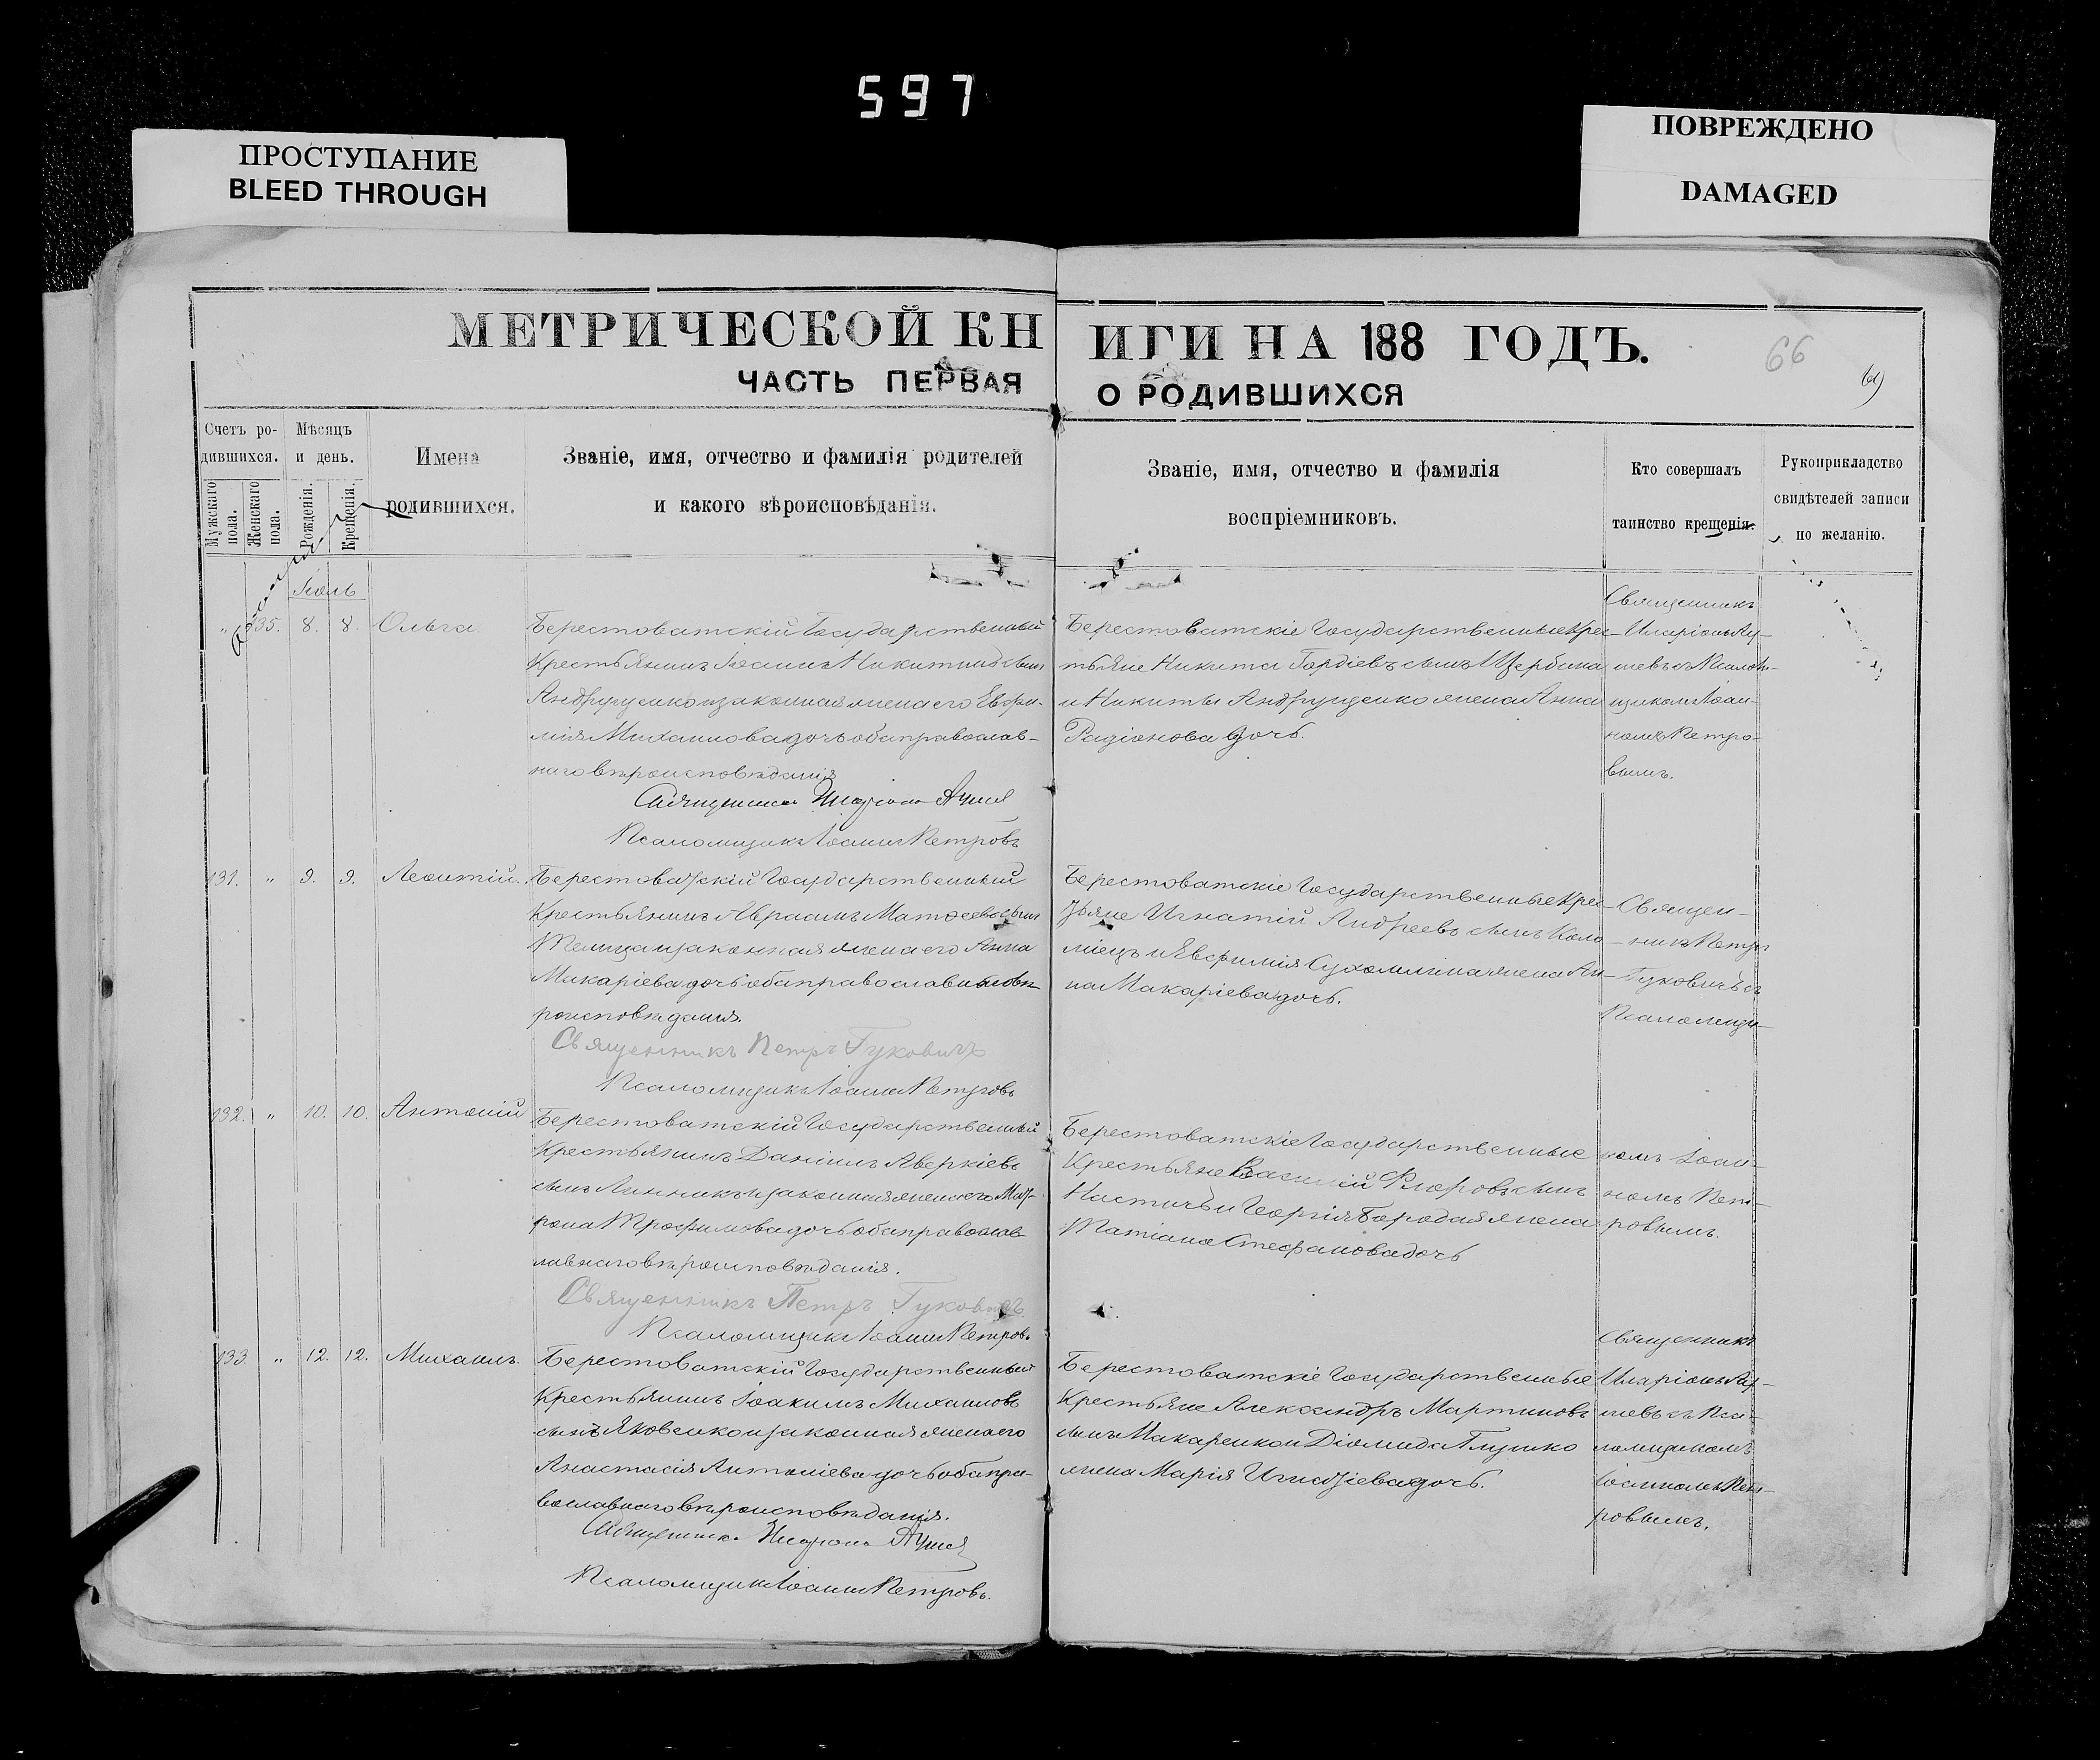 597
ПРОСТУПАНИЕ
BLEED THROUGH
ПОВРЕЖДЕНО
DAMAGED
МЕТРИЧЕСКОЙ КН
ИГИ НА 188 ГОДЪ.
66
ЧАСТЬ ПЕРВАЯ
О РОДИВШИХСЯ
Счетъ ро-
дившихся.
Мужскаго пола.
Женскаго пола.
Мѣсяцъ
и день.
Рожденія.
Крещенія.
Имена
родившихся.
Званіе, имя, отчество и фамилія родителей
и какого вѣроисповѣданія.
Званіе, имя, отчество и фамилія
воспріемниковъ.
Кто совершалъ
таинство крещенія.
Рукоприкладство
свидѣтелей записи
по желанію.
Іюль
" 135. 8. 8. Ольга
Берестоватскій Государственный
Крестьянинъ Іоаннъ Никитинъ сынъ
Андрущенко и законная жена его Евфи-
мія Михаилова дочь оба православ-
наго вѣроисповѣданія
Священникъ Иларіонъ
Псаломщикъ Іоаннъ Петровъ
Берестоватскіе Государственные Крес-
тьяне Никита Гордіевъ сынъ Щербина
и Никиты Андрущенко жена Анна
Радіонова дочь.
Священникъ
Иларіонъ
съ Псалом-
щикомъ Іоан-
номъ Петро-
вымъ.
131. " 9. 9. Леонтій.
Берестоватскій Государственный
Крестьянинъ Авраамъ Матѳеевъ сынъ
и законная жена его Анна
Макаріева дочь оба православнаго вѣ-
роисповѣданія.
Священникъ Петръ Гуковичъ
Псаломщикъ Іоаннъ Петровъ
Берестоватскіе Государственные Крес-
тьяне Игнатій Андреевъ сынъ Коло-
міецъ и Евфимія Сухомлина жена Ан-
на Макаріева дочь.
Священ-
никъ Петръ
Гуковичъ съ
Псаломщи-
132. " 10. 10. Антоній
Берестоватскій Государственный
Крестьянинъ Даніилъ Аверкіевъ
сынъ Линникъ и законная жена его Мат-
рона Трофимова дочь оба православ-
лавнаго вѣроисповѣданія.
Священникъ Петръ Гуковичъ
Псаломщикъ Іоаннъ Петровъ
Берестоватскіе Государственные
Крестьяне Василій Флоровъ сынъ
и Георгія Бородая жена
Татіана Стефанова дочь
комъ Іоан-
номъ Пет-
ровымъ.
133. " 12. 12. Михаилъ.
Берестоватскій Государственный
Крестьянинъ Іоакимъ Михаиловъ
сынъ Яковенко и законная жена его
Анастасія Антоніева дочь оба пра-
вославнаго вѣроисповѣданія.
Священникъ Иларіонъ
Псаломщикъ Іоаннъ Петровъ.
Берестоватскіе Государственные
Крестьяне Александръ Мартиновъ
сынъ Макаренко и Діомида Глушко
жена Марія Игнатіева дочь.
Священникъ
Иларіонъ
съ Пса-
ломщикомъ
Іоанномъ Пет-
ровымъ.